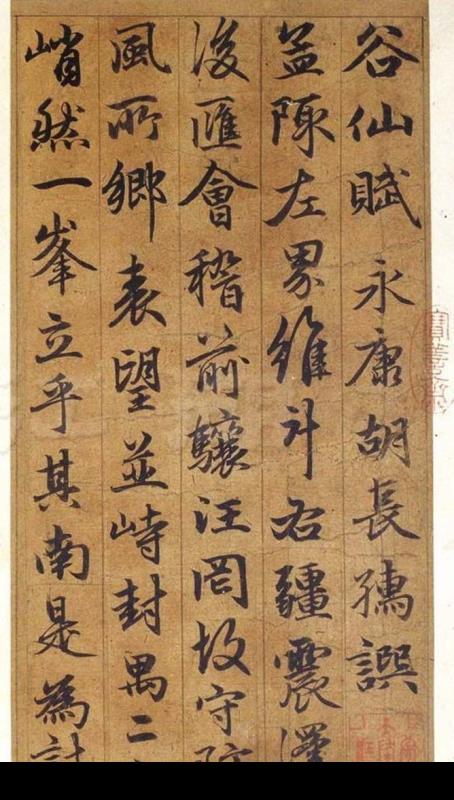 谷仙賦 永康胡長孺譔
孟陬左界維斗右疆震澤
後匯會稽前驤汪罔故守防
風所鄉表望並峙封禺二
峭然一峯立乎其南是為計